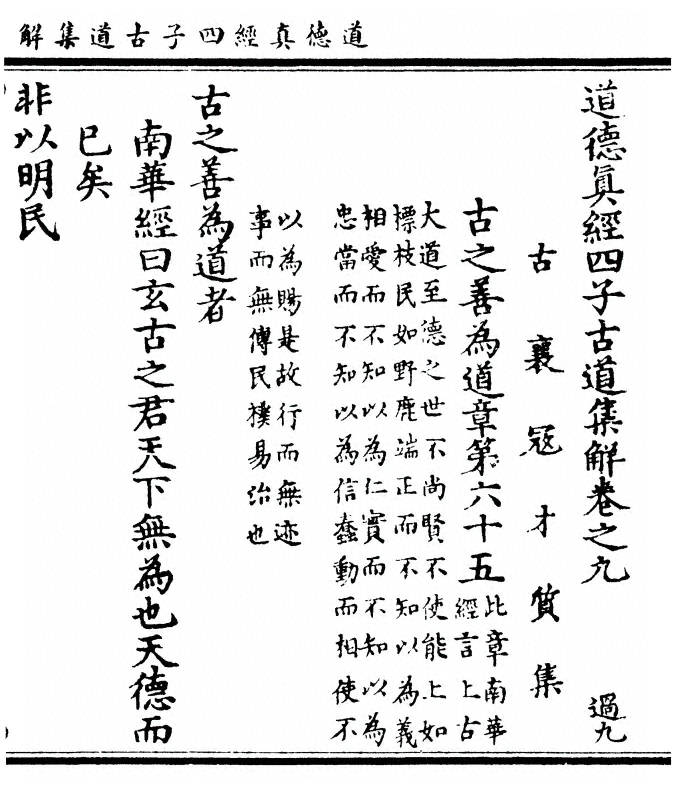 道德真經四子古道集解
道德眞經四子古道集解卷之九 過九
古襄冦才質集
古之善為道章第六十五 此章南華
經言上古
大道至德之世不尚賢不使能上如
標枝民如野鹿端正而不知以為義
相愛而不知以為仁實而不知以為
忠當而不知以為信蠢動而相使不
以為賜是故行而無迹
事而無傳民樸易治也
古之善為道者
南華經曰玄古之君天下無為也天德而
已矣
非以明民